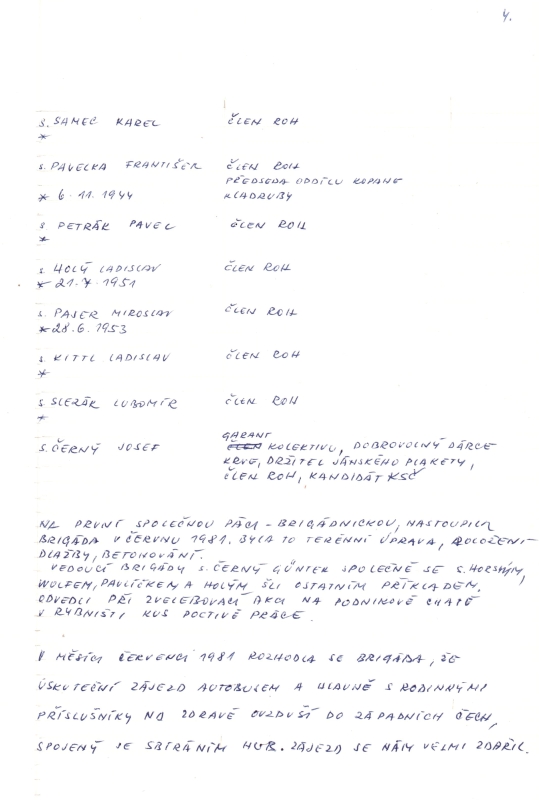 4.
S. SAMEC KAREL ČLEN ROH
*
S. PAVELKA FRANTIŠEK ČLEN ROH
PŘEDSEDA ODDÍLU KOPANÉ
* 6. 11. 1944 KLADRUBY
S. PETRÁK PAVEL ČLEN ROH
*
S. HOLÝ LADISLAV ČLEN ROH
* 21. 7. 1951
S. PAJER MIROSLAV ČLEN ROH
* 28. 6. 1953
S. KITTL LADISLAV ČLEN ROH
*
S. SLEZÁK LUBOMÍR ČLEN ROH
*
GARANT
S. ČERNÝ JOSEF ČLEN KOLEKTIVU, DOBROVOLNÝ DÁRCE
KRVE, DRŽITEL JÁNSKÉHO PLAKETY,
ČLEN ROH, KANDIDÁT KSČ
NA PRVNÍ SPOLEČNOU PRÁCI - BRIGÁDNICKOU, NASTOUPILA
BRIGÁDA V ČERVNU 1981. BYLA TO TERÉNNÍ ÚPRAVA, POLOŽENÍ
DLAŽBY, BETONOVÁNÍ.
VEDOUCÍ BRIGÁDY S. ČERNÝ GÜNTER SPOLEČNĚ SE S. HORSKÝM,
WOLFEM, PAVLÍČKEM A HOLÝM ŠLI OSTATNÍM PŘÍKLADEM.
ODVEDLI PŘI ZVELEBOVACÍ AKCI NA PODNIKOVÉ CHATĚ
V RYBNIŠTI KUS POCTIVÉ PRÁCE.
V MĚSÍCI ČERVENCI 1981 ROZHODLA SE BRIGÁDA, ŽE
USKUTEČNÍ ZÁJEZD AUTOBUSEM A HLAVNĚ S RODINNÝMI
PŘÍSLUŠNÍKY NA ZDRAVÉ OVZDUŠÍ DO ZÁPADNÍCH ČECH,
SPOJENÝ SE SBÍRÁNÍM HUB. ZÁJEZD SE NÁM VELMI ZDAŘIL.